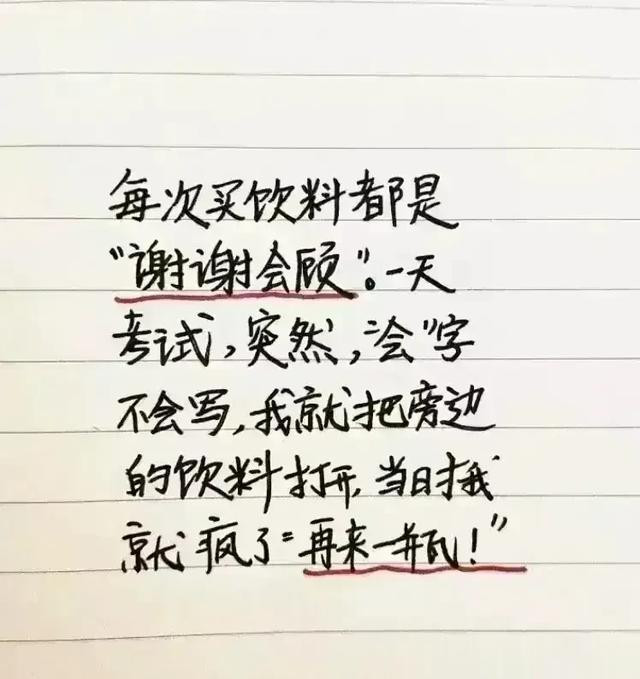 每次买饮料都是
“谢谢会顾”。一天
考试，突然，“会”字
不会写，我就把旁边
的饮料打开，当时我
就疯了“再来一瓶！”